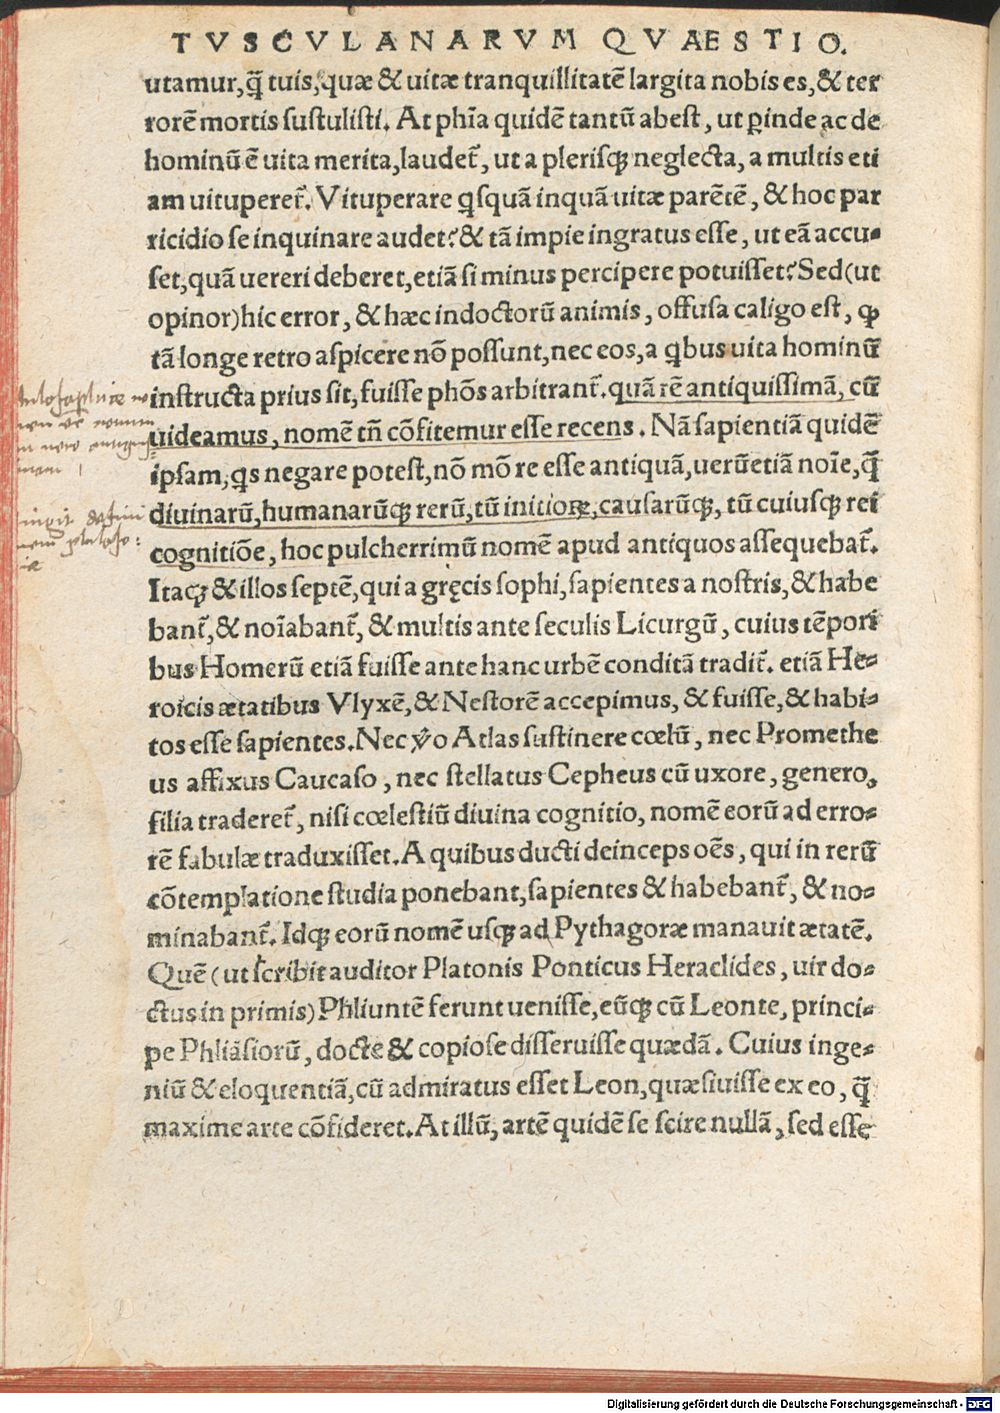 TVSCVLANARVM QVAESTIO.
utamur, q̃ tuis, quæ & uitæ tranquillitatẽ largita nobis es, & ter
rorẽ mortis sustulisti. At phĩa quidẽ tantũ abest, ut ꝑinde ac de
hominũ ẽ uita merita, laudet̃, ut a plerisqꝫ neglecta, a multis eti
am uituperet̃. Vituperare qsquã inquã uitæ parẽtẽ, & hoc par
ricidio se inquinare audet? & tã impie ingratus esse, ut eã accu-
set, quã uereri deberet, etiã si minus percipere potuisset? Sed (ut
opinor) hic error, & hæc indoctorũ animis, offusa caligo est, ꝙ
tã longe retro aspicere nõ possunt, nec eos, a qbus uita hominũ
instructa prius sit, fuisse phõs arbitrant̃. quã rẽ antiquissimã, cũ
uideamus, nomẽ tñ cõfitemur esse recens. Nã sapientiã quidẽ
ipsam, qs negare potest, nõ mõ re esse antiquã, uerũetiã noĩe, q̃
diuinarũ, humanarũqꝫ rerũ, tũ initioꝝ, causarũqꝫ, tũ cuiusqꝫ rei
cognitiõe, hoc pulcherrimũ nomẽ apud antiquos assequebat̃.
Itaqꝫ & illos septẽ, qui a gręcis sophi, sapientes a nostris, & habe
bant̃, & noĩabant̃, & multis ante seculis Licurgũ, cuius tẽpori
bus Homerũ etiã fuisse ante hanc urbẽ conditã tradit̃. etiã He-
roicis ætatibus Vlyxẽ, & Nestorẽ accepimus, & fuisse, & habi-
tos esse sapientes. Nec ỹo Atlas sustinere cœlũ, nec Promethe
us affixus Caucaso, nec stellatus Cepheus cũ uxore, genero,
filia traderet̃, nisi cœlestiũ diuina cognitio, nomẽ eorũ ad erro-
rẽ fabulæ traduxisset. A quibus ducti deinceps oẽs, qui in rerũ
cõtemplatione studia ponebant, sapientes & habebant̃, & no-
minabant̃. Idqꝫ eorũ nomẽ usqꝫ ad Pythagoræ manauit ætatẽ.
Quẽ (ut scribit auditor Platonis Ponticus Heraclides, uir do-
ctus in primis) Phliuntẽ ferunt uenisse, eũqꝫ cũ Leonte, princi-
pe Phliãsiorũ, docte & copiose disseruisse quædã. Cuius inge-
niũ & eloquentiã, cũ admiratus esset Leon, quæsiuisse ex eo, q̃
maxime arte cõfideret. At illũ, artẽ quidẽ se scire nullã, sed esse
Digitalisierung gefördert durch die Deutsche Forschungsgemeinschaft - DFG